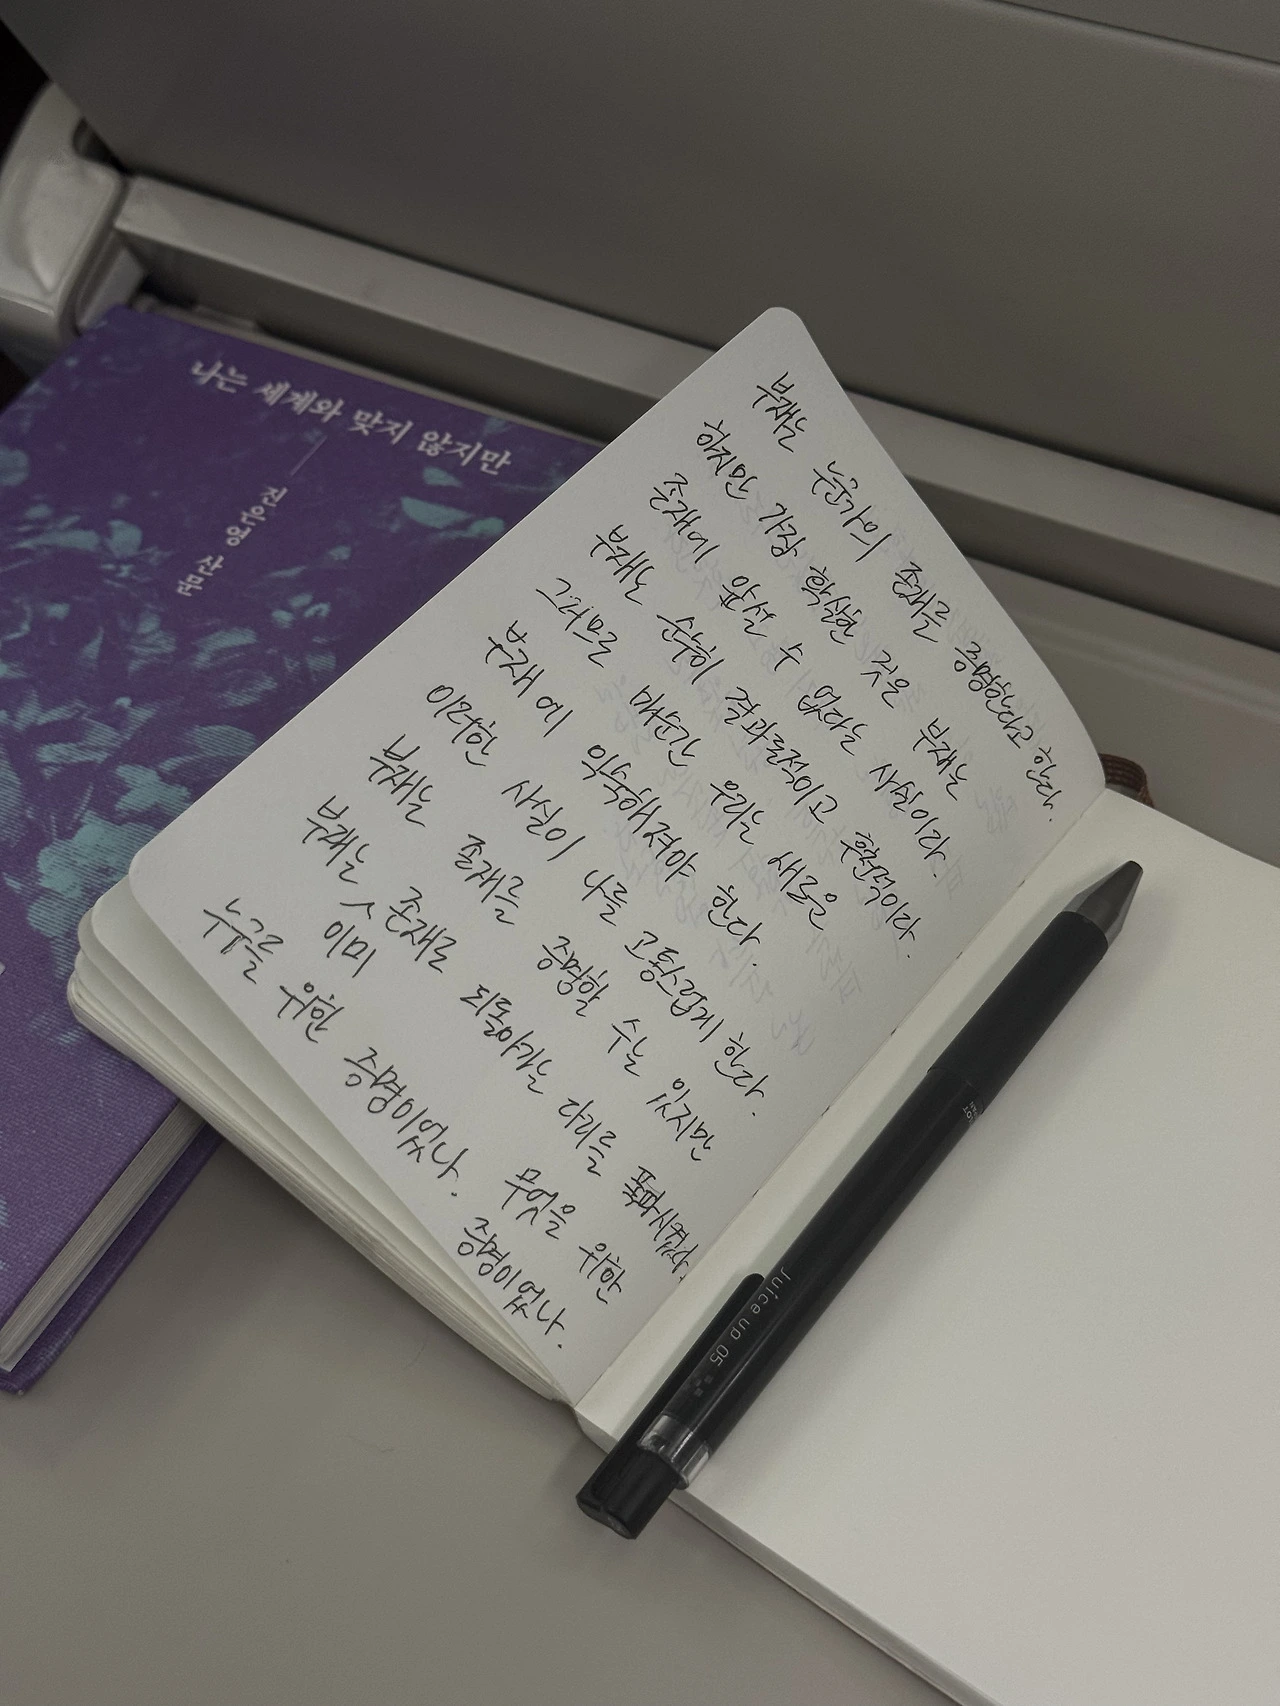 나는 세계와 맞지 않지만
진은영 산문
부재는 누군가의 존재를 증명한다고 한다.
하지만 가장 확실한 것은 부재는
존재에 앞설 수 없다는 사실이다.
부재는 순수히 결과론적이고 후천적이다.
그러므로 매순간 우리는 새로운
부재에 익숙해져야 한다.
이러한 사실이 나를 고통스럽게 한다.
부재는 존재를 증명할 수는 있지만
부재는 이미 존재로 되돌아가는 다리를 폭파시켰다.
누구를 위한 증명이었나. 무엇을 위한
증명이었나.
Juice up 05